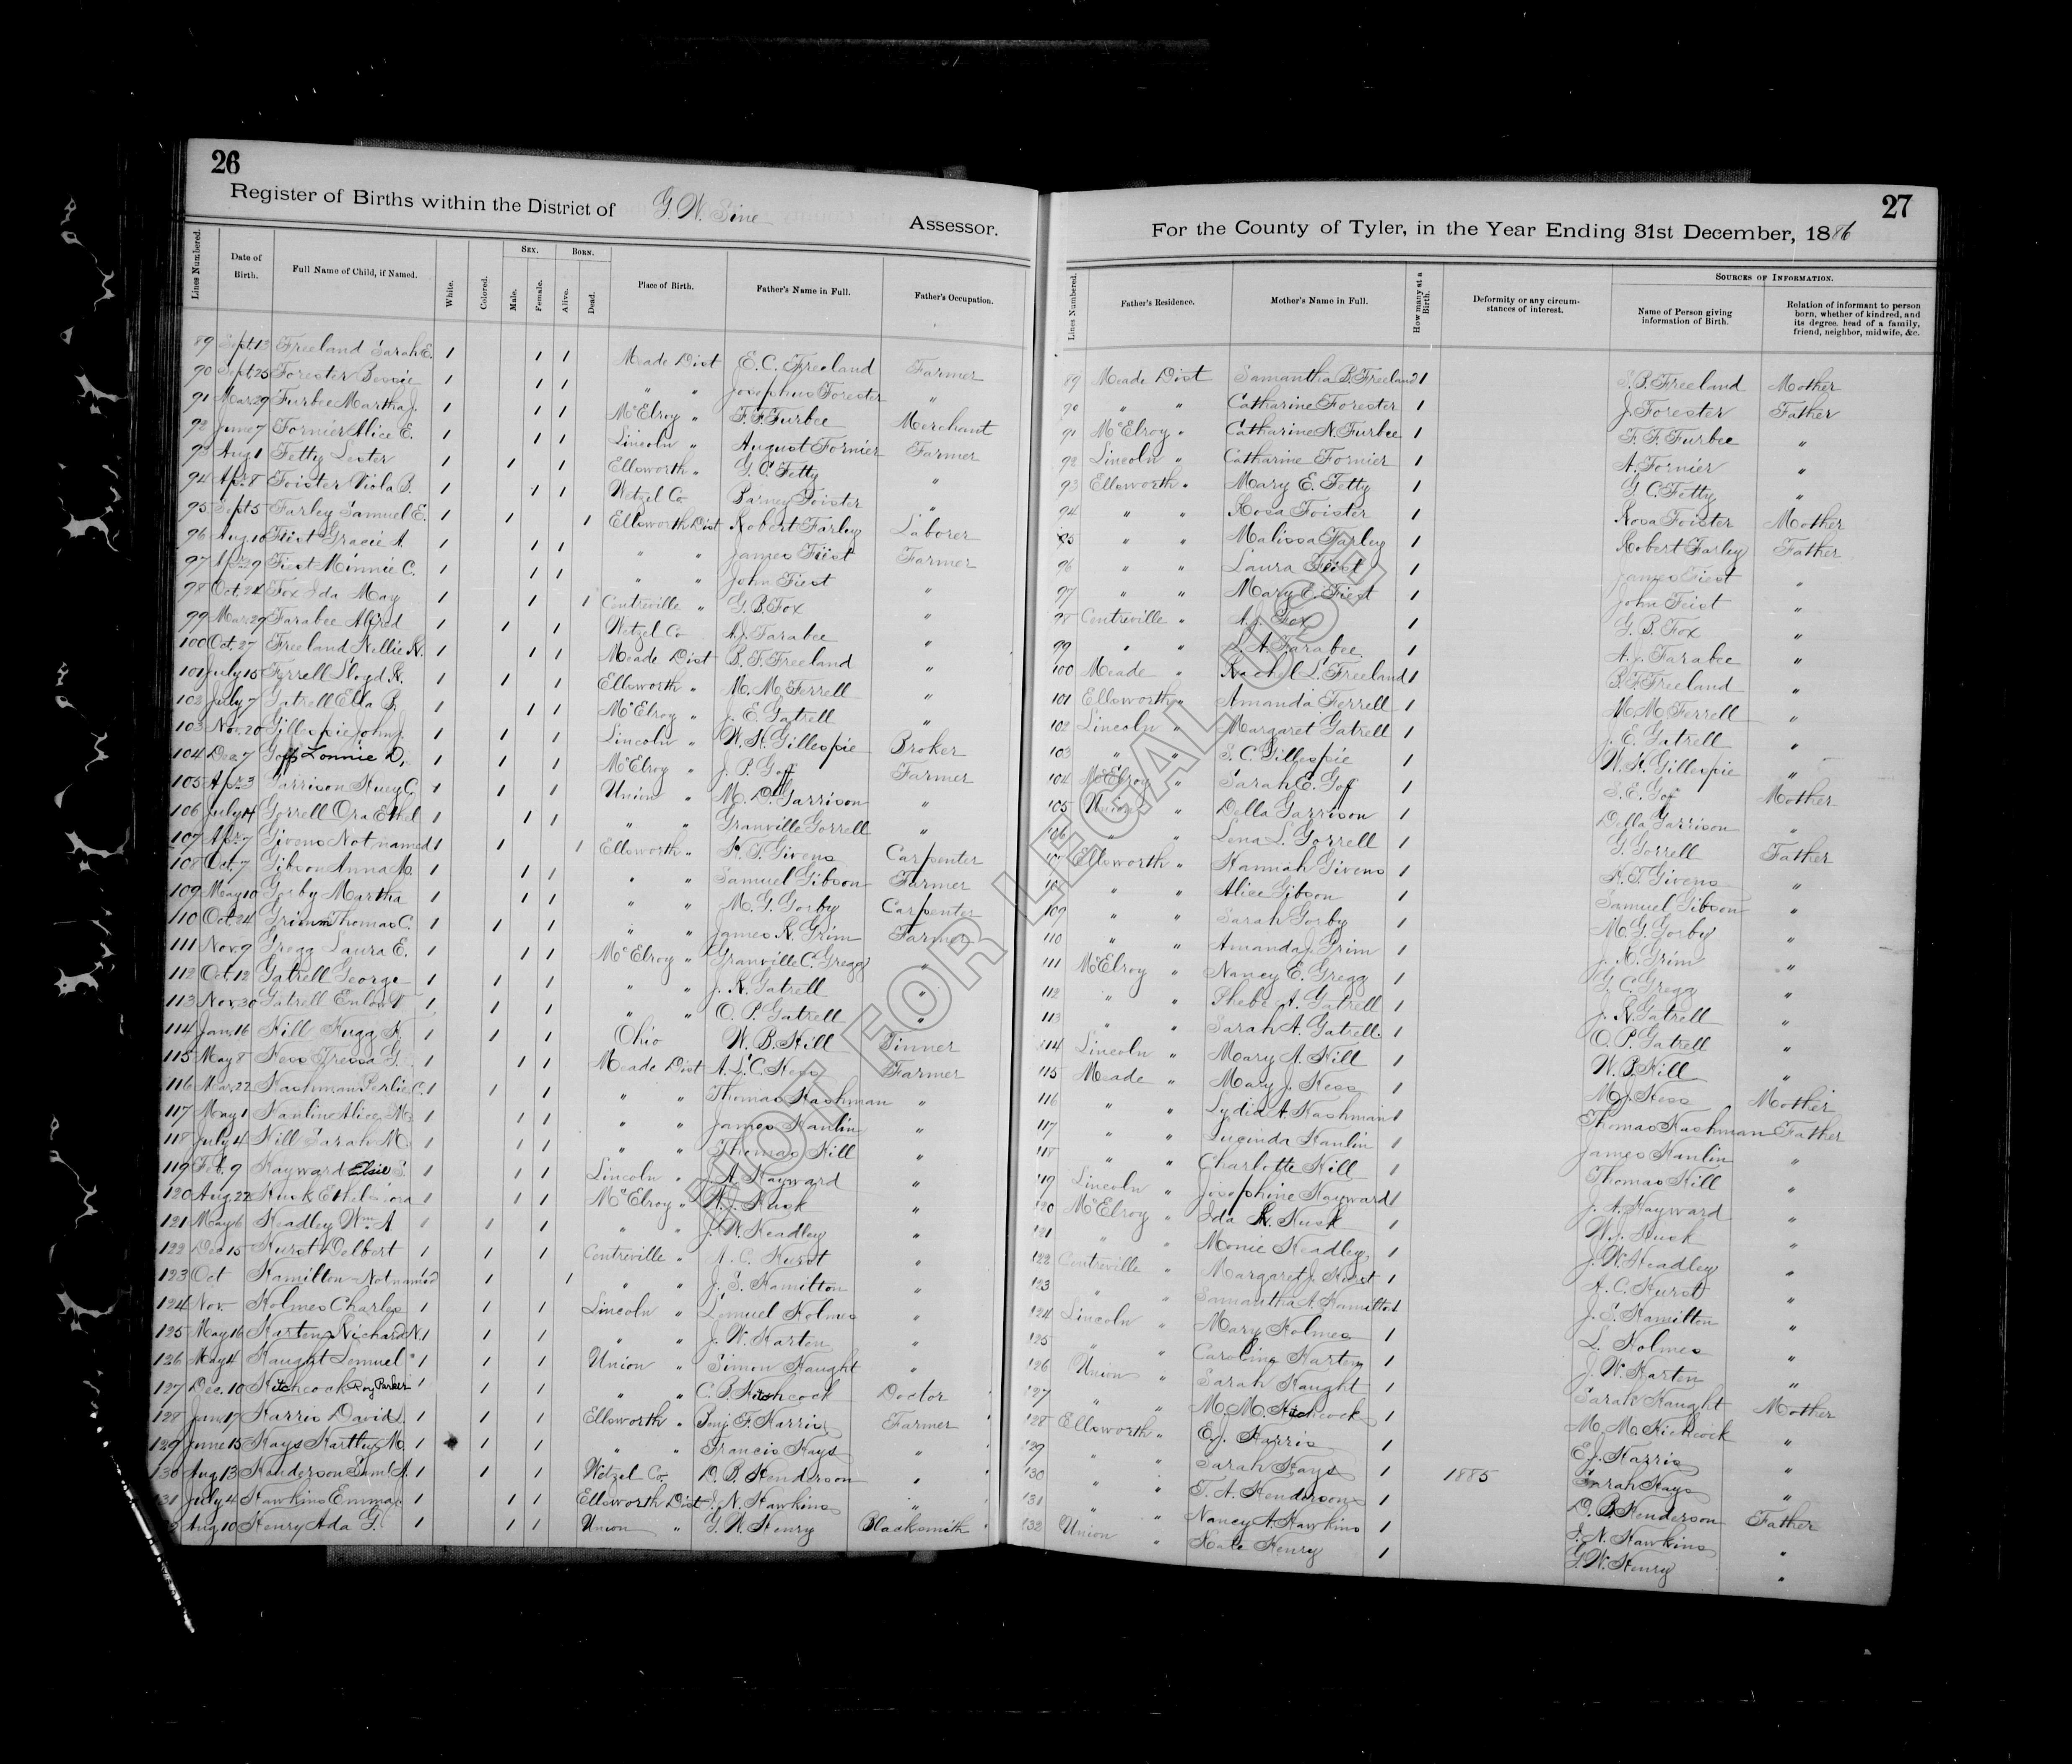 26
Register of Births within the District of G. W. Pine Assessor.
Lines Numbered. Date of Birth. Full Name of Child, if Named. White. Colored. Sex. Male. Female. Born. Alive. Dead. Place of Birth. Father's Name in Full. Father's Occupation.
89 Sept 13 Freeland Sarah E. 1 1 1 Meade Dist E. C. Freeland Farmer
90 Sept 25 Forester Bessie 1 1 1 " " Josephus Forester "
91 Mar. 29 Furbee Martha J. 1 1 1 McElroy " F. F. Furbee Merchant
92 June 7 Fornier Alice E. 1 1 1 Lincoln " August Fornier Farmer
93 Aug 1 Fetty Lester 1 1 1 Ellsworth " G. C. Fetty "
94 Apr. 8 Foister Viola B. 1 1 1 Wetzel Co Barney Foister "
95 Sept 5 Farley Samuel E. 1 1 1 Ellsworth Dist Robert Farley Laborer
96 Aug 10 Fiest Gracie A. 1 1 1 " " James Fiest Farmer
97 Apr. 29 Fiest Minnie C. 1 1 1 " " John Fiest "
98 Oct. 24 Fox Ida May 1 1 1 Centreville " G. B. Fox "
99 Mar. 29 Farabee Alfred 1 1 1 Wetzel Co A. J. Farabee "
100 Oct. 27 Freeland Nellie R. 1 1 1 Meade Dist B. F. Freeland "
101 July 15 Ferrell Lloyd R. 1 1 1 Ellsworth " M. M. Ferrell "
102 July 7 Gatrell Ella B. 1 1 1 McElroy " J. E. Gatrell "
103 Nov. 20 Gillespie John J. 1 1 1 Lincoln " W. H. Gillespie Broker
104 Dec. 7 Goff Lonnie D. 1 1 1 McElroy " J. P. Goff Farmer
105 Apr. 3 Garrison Huey C. 1 1 1 Union " M. D. Garrison "
106 July 14 Gorrell Ora Ethel 1 1 1 " " Granville Gorrell "
107 Apr. 7 Givens Not named 1 1 1 Ellsworth " H. T. Givens Carpenter
108 Oct. 7 Gibson Anna M. 1 1 1 " " Samuel Gibson Farmer
109 May 10 Gorby Martha 1 1 1 " " M. G. Gorby Carpenter
110 Oct. 24 Grimm Thomas C. 1 1 1 " " James R. Grim Farmer
111 Nov. 9 Gregg Laura E. 1 1 1 McElroy " Granville C. Gregg "
112 Oct. 12 Gatrell George 1 1 1 " " J. R. Gatrell "
113 Nov. 30 Gatrell 1 1 1 " " O. P. Gatrell "
114 Jan. 16 Hill Hugg H. 1 1 1 Ohio W. B. Hill Tinner
115 May 8 Hess Tressa G. 1 1 1 Meade Dist A. L. C. Hess Farmer
116 Mar. 22 Hashman Perlie O. 1 1 1 " " Thomas Hashman "
117 May 1 Hanlin Alice M. 1 1 1 " " James Hanlin "
118 July 4 Hill Sarah M. 1 1 1 " " Thomas Hill "
119 Feb. 9 Hayward Elsie S. 1 1 1 Lincoln " J. A. Hayward "
120 Aug. 22 Husk Ethel 1 1 1 McElroy " W. J. Husk "
121 May 6 Headley Wm A 1 1 1 " " J. W. Headley "
122 Dec 15 Hurst Delbert 1 1 1 Centreville " A. C. Hurst "
123 Oct Hamilton Not named 1 1 1 " " J. S. Hamilton "
124 Nov. Holmes Charles 1 1 1 Lincoln " Lemuel Holmes "
125 May 16 Harten Richard N. 1 1 1 " " J. W. Harten "
126 May 4 Haught Lemuel 1 1 1 Union " Simon Haught "
127 Dec. 10 Hitchcock Roy Parker 1 1 1 " " C. B. Hitchcock Doctor
128 Jan. 17 Harris David L. 1 1 1 Ellsworth " Benj. F. Harris Farmer
129 June 15 Hays Hartley M. 1 1 1 " " Francis Hays "
130 Aug. 13 Henderson Saml A. 1 1 1 Wetzel Co. D. B. Henderson "
131 July 4 Hawkins Emma J. 1 1 1 Ellsworth Dist J. N. Hawkins "
Aug 10 Henry Ada G. 1 1 1 Union " G. W. Henry Blacksmith
27
For the County of Tyler, in the Year Ending 31st December, 1886
Lines Numbered. Father's Residence. Mother's Name in Full. How many at a Birth. Deformity or any circumstances of interest. Sources of Information. Name of Person giving information of Birth. Relation of informant to person born, whether of kindred, and its degree, head of a family, friend, neighbor, midwife, &c.
89 Meade Dist Samantha B. Freeland 1 S. B. Freeland Mother
90 " " Catharine Forester 1 J. Forester Father
91 McElroy " Catharine N. Furbee 1 F. F. Furbee "
92 Lincoln " Catharine Fornier 1 A. Fornier "
93 Ellsworth " Mary E. Fetty 1 G. C. Fetty "
94 " " Rosa Foister 1 Rosa Foister Mother
95 " " Malissa Farley 1 Robert Farley Father
96 " " Laura Fiest 1 James Fiest "
97 " " Mary E. Fiest 1 John Fiest "
98 Centreville " A. J. Fox 1 G. B. Fox "
99 " " L. A. Farabee 1 A. J. Farabee "
100 Meade " Rachel L. Freeland 1 B. F. Freeland "
101 Ellsworth " Amanda Ferrell 1 M. M. Ferrell "
102 Lincoln " Margaret Gatrell 1 J. E. Gatrell "
103 " " S. C. Gillespie 1 W. H. Gillespie "
104 McElroy " Sarah E. Goff 1 S. E. Goff Mother
105 Union " Della Garrison 1 Della Garrison "
106 " " Lena L. Gorrell 1 G. Gorrell Father
107 Ellsworth " Hannah Givens 1 H. T. Givens "
108 " " Alice Gibson 1 Samuel Gibson "
109 " " Sarah Gorby 1 M. G. Gorby "
110 " " Amanda J. Grim 1 J. R. Grim "
111 McElroy " Nancy E. Gregg 1 G. C. Gregg "
112 " " Phebe A. Gatrell 1 J. R. Gatrell "
113 " " Sarah A. Gatrell 1 O. P. Gatrell "
114 Lincoln " Mary A. Hill 1 W. B. Hill "
115 Meade " Mary J. Hess 1 M. J. Hess Mother
116 " " Lydia A. Hashman 1 Thomas Hashman Father
117 " " Lucinda Hanlin 1 James Hanlin "
118 " " Charlotte Hill 1 Thomas Hill "
119 Lincoln " Josephine Hayward 1 J. A. Hayward "
120 McElroy " Ida R. Husk 1 W. J. Husk "
121 " " Monie Headley 1 J. W. Headley "
122 Centreville " Margaret J. Hurst 1 A. C. Hurst "
123 " " Samantha A. Hamilton 1 J. S. Hamilton "
124 Lincoln " Mary Holmes 1 L. Holmes "
125 " " Caroline Harten 1 J. W. Harten "
126 Union " Sarah Haught 1 Sarah Haught Mother
127 " " M. M. Hitchcock 1 M. M. Hichcock "
128 Ellsworth " E. J. Harris 1 E. J. Harris "
129 " " Sarah Hays 1 1885 Sarah Hays "
130 " " T. A. Henderson 1 D. B. Henderson Father
131 " " Nancy A. Hawkins 1 J. N. Hawkins "
132 Union " Kate Henry 1 G. W. Henry "
NOT FOR LEGAL USE